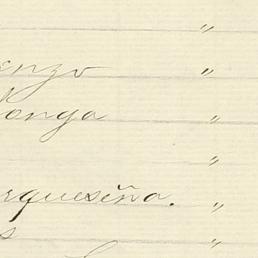 "
enzo "
onga "
"
rqueseña. "
s "